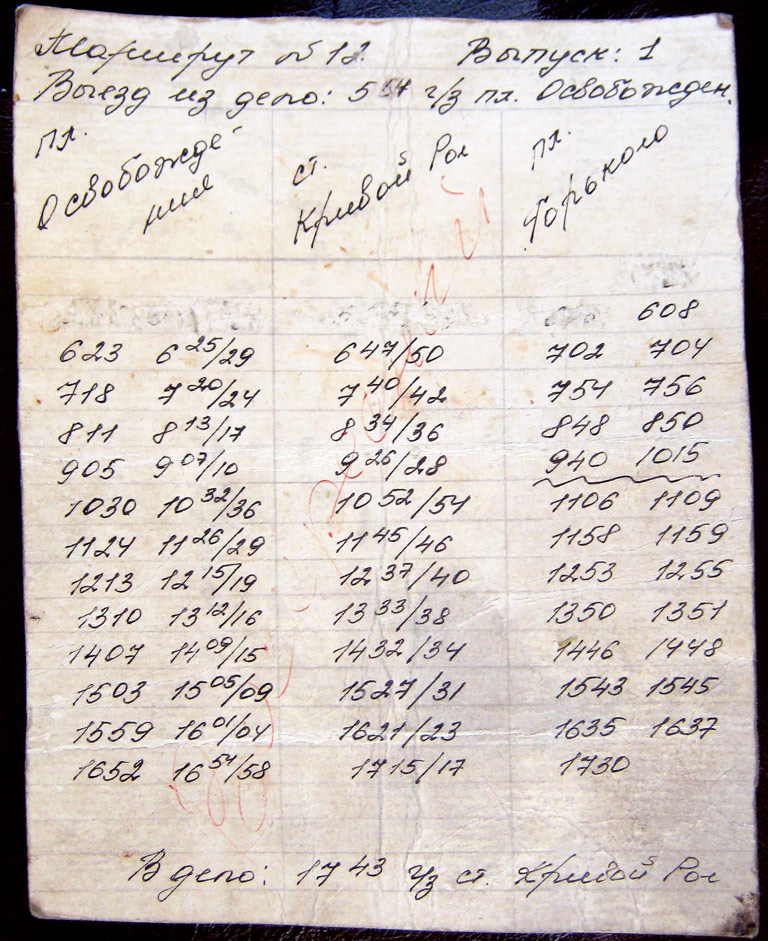 Маршрут № 12. Выпуск: 1
Выезд из депо: 5 54 ч/з пл. Освобожден.
пл. Освобожде-
ния
ст. Кривой Рог
пл. Горького
608
623 6 25/29 6 47/50 702 704
718 7 20/24 7 40/42 754 756
811 8 13/17 8 34/36 848 850
905 9 07/10 9 26/28 940 1015
1030 10 32/36 10 52/54 1106 1109
1124 11 26/29 11 45/46 1158 1159
1213 12 15/19 12 37/40 1253 1255
1310 13 12/16 13 33/38 1350 1351
1407 14 09/15 1432/34 1446 1448
1503 15 05/09 1527/31 1543 1545
1559 16 01/04 1621/23 1635 1637
1652 16 54/58 1715/17 1730
В депо: 17 43 ч/з ст. Кривой Рог